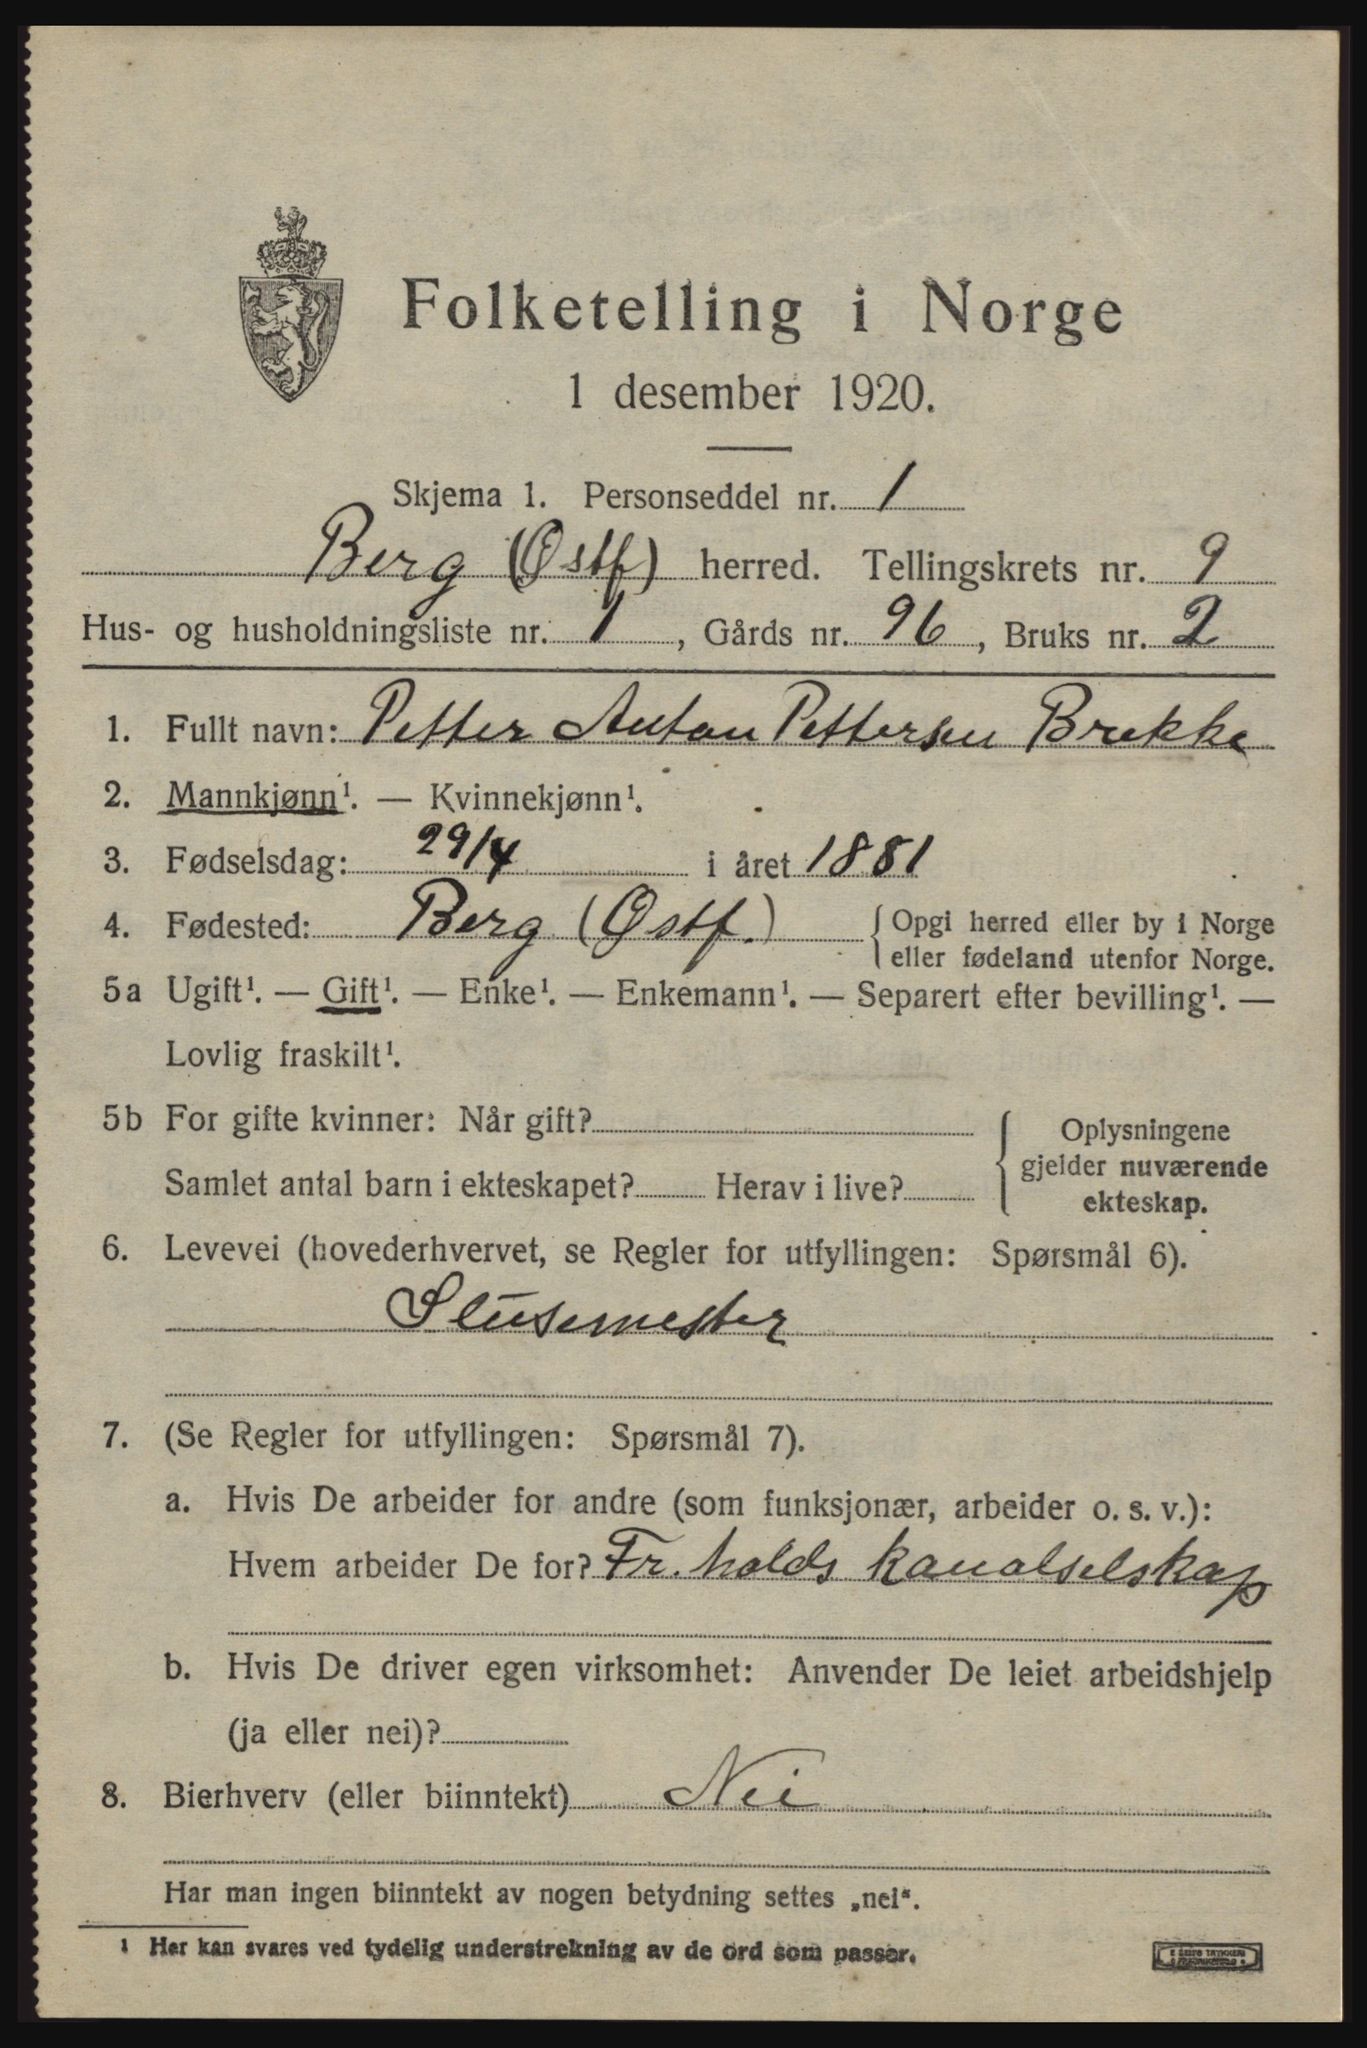 Folketelling i Norge
1 desember 1920.
Skjema 1. Personseddel nr. 1
Berg (Østf) herred. Tellingskrets nr. 9
Hus- og husholdningsliste nr. 1, Gårds nr. 96, Bruks nr. 2
1. Fullt navn: Petter Anton Pettersen Brekke
2. Mannkjønn¹. — Kvinnekjønn¹.
3. Fødselsdag: 29/4 i året 1881
4. Fødested: Berg (Østf.) { Opgi herred eller by i Norge
eller fødeland utenfor Norge.
5a Ugift¹. — Gift¹. — Enke¹. — Enkemann¹. — Separert efter bevilling¹. —
Lovlig fraskilt¹.
5b For gifte kvinner: Når gift?
Samlet antal barn i ekteskapet? Herav i live?
{ Oplysningene
gjelder nuværende
ekteskap.
6. Levevei (hovederhvervet, se Regler for utfyllingen: Spørsmål 6).
Slusemester
7. (Se Regler for utfyllingen: Spørsmål 7).
a. Hvis De arbeider for andre (som funksjonær, arbeider o. s. v.):
Hvem arbeider De for? Fr.halds kanalselskap
b. Hvis De driver egen virksomhet: Anvender De leiet arbeidshjelp
(ja eller nei)?
8. Bierhverv (eller biinntekt) Nei
Har man ingen biinntekt av nogen betydning settes „nei“.
¹ Her kan svares ved tydelig understrekning av de ord som passer.